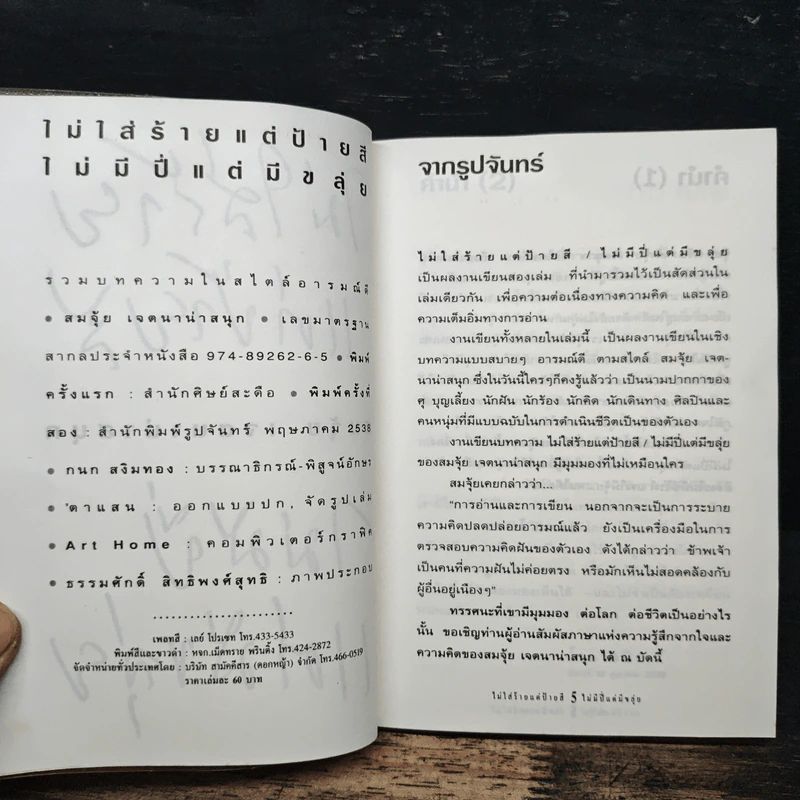 ไม่ใส่ร้ายแต่ป้ายสี
ไม่มีปี่แต่มีขลุ่ย
รวมบทความในสไตล์อารมณ์ดี
● สมจุ้ย เจตนาน่าสนุก ● เลขมาตรฐาน
สากลประจำหนังสือ 974-89262-6-5 ● พิมพ์
ครั้งแรก : สำนักศิษย์สะดือ ● พิมพ์ครั้งที่
สอง : สำนักพิมพ์รูปจันทร์ พฤษภาคม 2538
● กนก สงิมทอง : บรรณาธิกรณ์-พิสูจน์อักษร
● 'ตาแสน : ออกแบบปก, จัดรูปเล่ม
● Art Home : คอมพิวเตอร์กราฟิค
● ธรรมศักดิ์ สิทธิพงศ์สุทธิ : ภาพประกอบ
เพลทสี : เลย์ โปรเซท โทร.433-5433
พิมพ์สีและขาวดำ : หจก.เม็ดทราย พริ้นติ้ง โทร.424-2872
จัดจำหน่ายทั่วประเทศโดย : บริษัท สามัคคีสาร (ดอกหญ้า) จำกัด โทร.466-0519
ราคาเล่มละ 60 บาท
จากรูปจันทร์
ไม่ใส่ร้ายแต่ป้ายสี / ไม่มีปี่แต่มีขลุ่ย
เป็นผลงานเขียนสองเล่ม ที่นำมารวมไว้เป็นสัดส่วนใน
เล่มเดียวกัน เพื่อความต่อเนื่องทางความคิด และเพื่อ
ความเต็มอิ่มทางการอ่าน
งานเขียนทั้งหลายในเล่มนี้ เป็นผลงานเขียนในเชิง
บทความแบบสบายๆ อารมณ์ดี ตามสไตล์ สมจุ้ย เจต-
นาน่าสนุก ซึ่งในวันนี้ใครๆก็คงรู้แล้วว่า เป็นนามปากกาของ
ศุ บุญเลี้ยง นักฝัน นักร้อง นักคิด นักเดินทาง ศิลปินและ
คนหนุ่มที่มีแบบฉบับในการดำเนินชีวิตเป็นของตัวเอง
งานเขียนบทความ ไม่ใส่ร้ายแต่ป้ายสี / ไม่มีปี่แต่มีขลุ่ย
ของสมจุ้ย เจตนาน่าสนุก มีมุมมองที่ไม่เหมือนใคร
สมจุ้ยเคยกล่าวว่า...
"การอ่านและการเขียน นอกจากจะเป็นการระบาย
ความคิดปลดปล่อยอารมณ์แล้ว ยังเป็นเครื่องมือในการ
ตรวจสอบความคิดฝันของตัวเอง ดังได้กล่าวว่า ข้าพเจ้า
เป็นคนที่ความฝันไม่ค่อยตรง หรือมักเห็นไม่สอดคล้องกับ
ผู้อื่นอยู่เนืองๆ"
ทรรศนะที่เขามีมุมมอง ต่อโลก ต่อชีวิตเป็นอย่างไร
นั้น ขอเชิญท่านผู้อ่านสัมผัสภาษาแห่งความรู้สึกจากใจและ
ความคิดของสมจุ้ย เจตนาน่าสนุก ได้ ณ บัดนี้
ไม่ใส่ร้ายแต่ป้ายสี 5 ไม่มีปี่แต่มีขลุ่ย